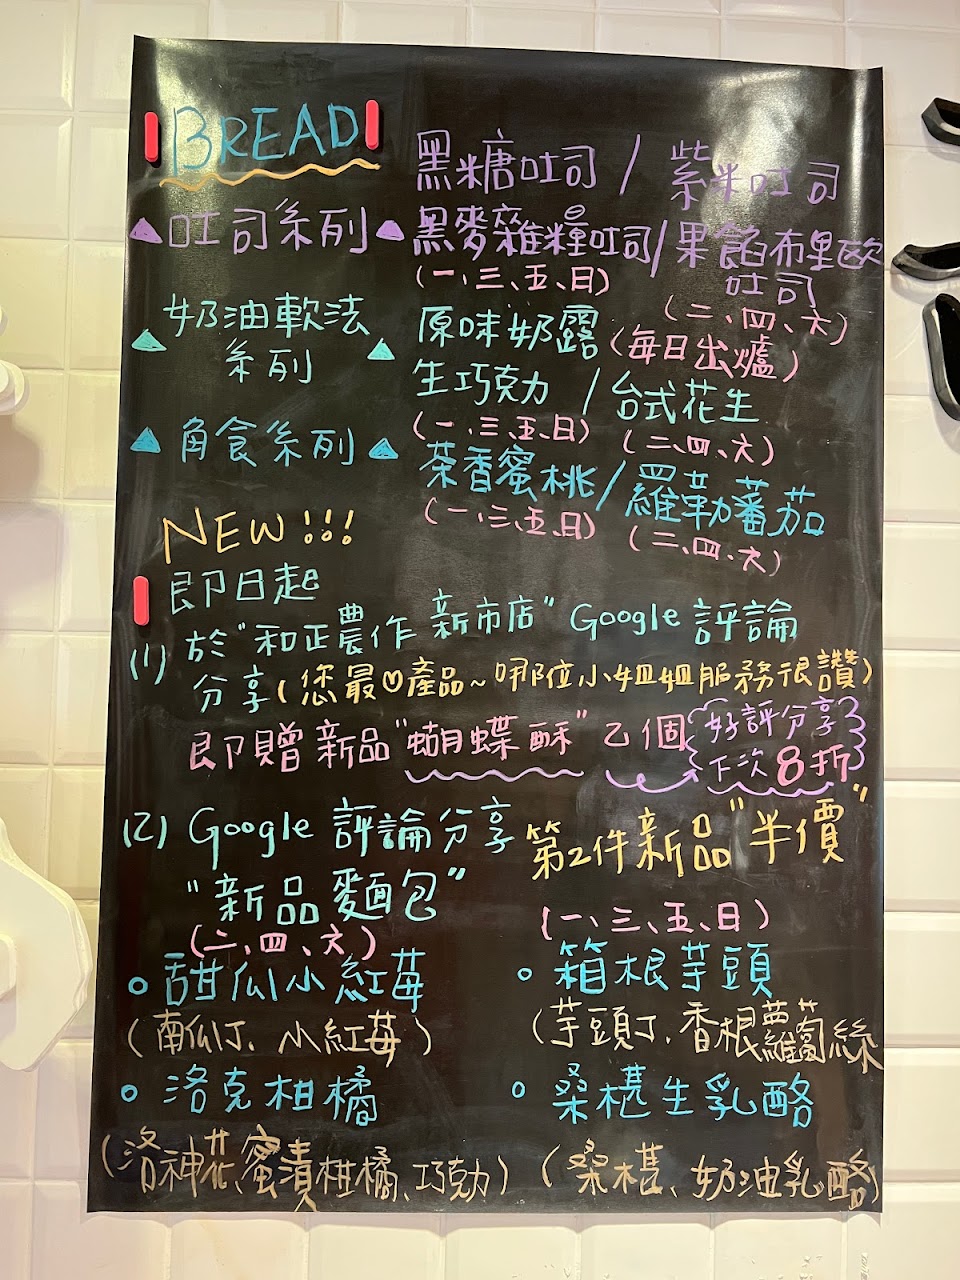 BREAD
黑糖吐司 / 紫米吐司
吐司系列
黑麥雜糧吐司 / 果餡布里歐吐司
(一、三、五、日)
(二、四、六)
奶油軟法系列
原味奶露 (每日出爐)
生巧克力 / 台式花生
(一、三、五、日) (二、四、六)
角食系列
茶香蜜桃 / 羅勒蕃茄
(一、三、五、日) (二、四、六)
NEW!!!
即日起
(1) 於"和正農作 新市店" Google 評論
分享(您最♡產品~哪位小姐姐服務很讚)
即贈新品"蝴蝶酥"乙個
好評分享
下次8折
(2) Google 評論分享
"新品麵包"
第2件新品"半價"
(二、四、六)
甜瓜小紅莓
(南瓜丁、小紅莓)
洛克柑橘
(洛神花、蜜漬柑橘、巧克力)
(一、三、五、日)
箱根芋頭
(芋頭丁、香根蘿蔔絲
桑椹生乳酪
(桑椹、奶油乳酪)